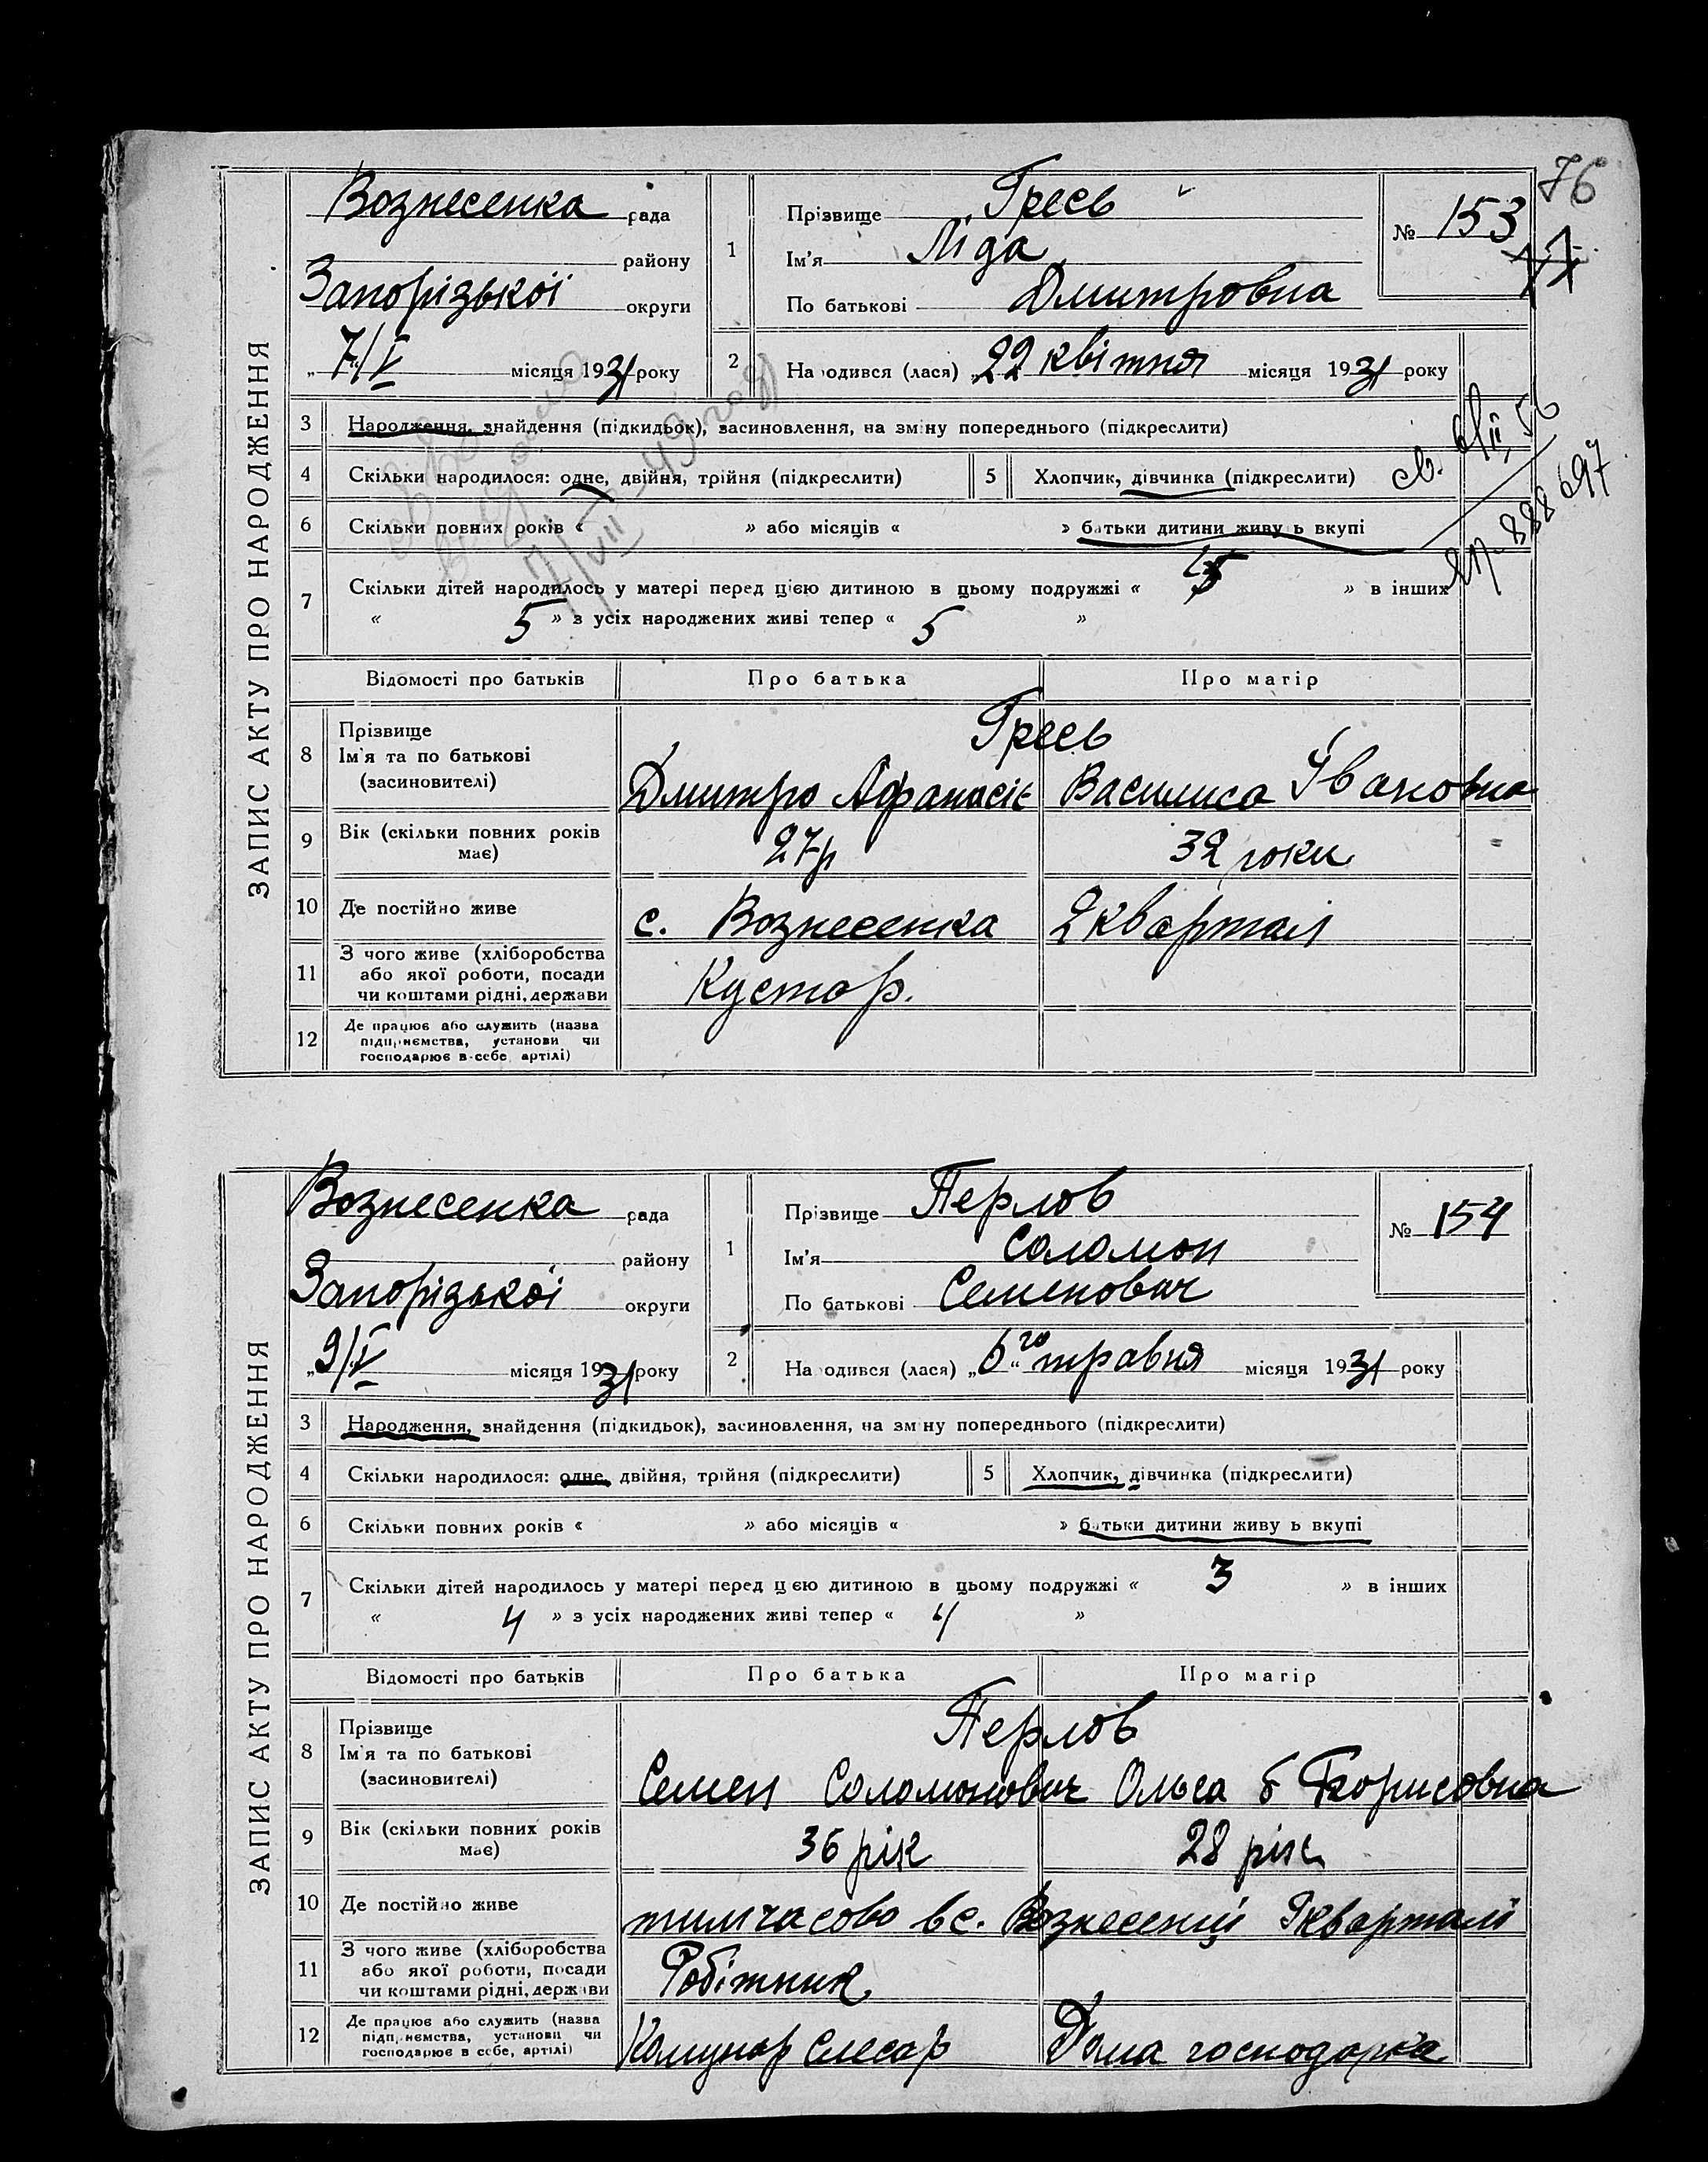 76
77
ЗАПИС АКТУ ПРО НАРОДЖЕННЯ
Вознесенка рада
району
Запорізької округи
„7/V місяця 1931 року
1
Прізвище Гресь
Ім'я Ліда
По батькові Дмитровна
№ 153
2 На одився (лася) „22 квітня місяця 1931 року
3 Народження, знайдення (підкидьок), засиновлення, на зміну попереднього (підкреслити)
4 Скільки народилося: одне, двійня, трійня (підкреслити) 5 Хлопчик, дівчинка (підкреслити)
6 Скільки повних років « » або місяців « » батьки дитини живу ь вкупі
7 Скільки дітей народилось у матері перед цією дитиною в цьому подружжі « » в інших
« 5 » з усіх народжених живі тепер « 5 »
7/VII-49
888697
Відомості про батьків Про батька Про матір
8 Прізвище
Ім'я та по батькові
(засиновителі)
Гресь
Дмитро Афанасіє Василиса Івановна
9 Вік (скільки повних років має) 27р 32 роки
10 Де постійно живе с. Вознесенка 2 квартал
11 З чого живе (хліборобства
або якої роботи, посади
чи коштами рідні, держави
Кустар.
12 Де працює або служить (назва
підпр ємства, установи чи
господарює в себе, артілі)
ЗАПИС АКТУ ПРО НАРОДЖЕННЯ
Вознесенка рада
району
Запорізької округи
„9/V місяця 1931 року
1
Прізвище Перлов
Ім'я Соломон
По батькові Семенович
№ 154
2 На одився (лася) „6го“ травня місяця 1931 року
3 Народження, знайдення (підкидьок), засиновлення, на зм ну попереднього (підкреслити)
4 Скільки народилося: одне, двійня, трійня (підкреслити) 5 Хлопчик, дівчинка (підкреслити)
6 Скільки повних років « » або місяців « » батьки дитини живу ь вкупі
7 Скільки дітей народилось у матері перед ц єю дитиною в цьому подружжі « 3 » в інших
« 4 » з усіх народжених живі тепер « 4 »
Відомості про батьків Про батька Про матір
8 Прізвище
Ім'я та по батькові
(засиновителі)
Перлов
Семен Соломонович Ольга Борисовна
9 Вік (скільки повних років має) 36 рік 28 рік
10 Де постійно живе тимчасово в с. Вознесенці кварталі
11 З чого живе (хліборобства
або якої роботи, посади
чи коштами рідні, держ ви
Робітник
12 Де працює або служить (назва
підп ємства, установи чи
господарює в себе, артілі)
Комунар Слесар Дома господарка